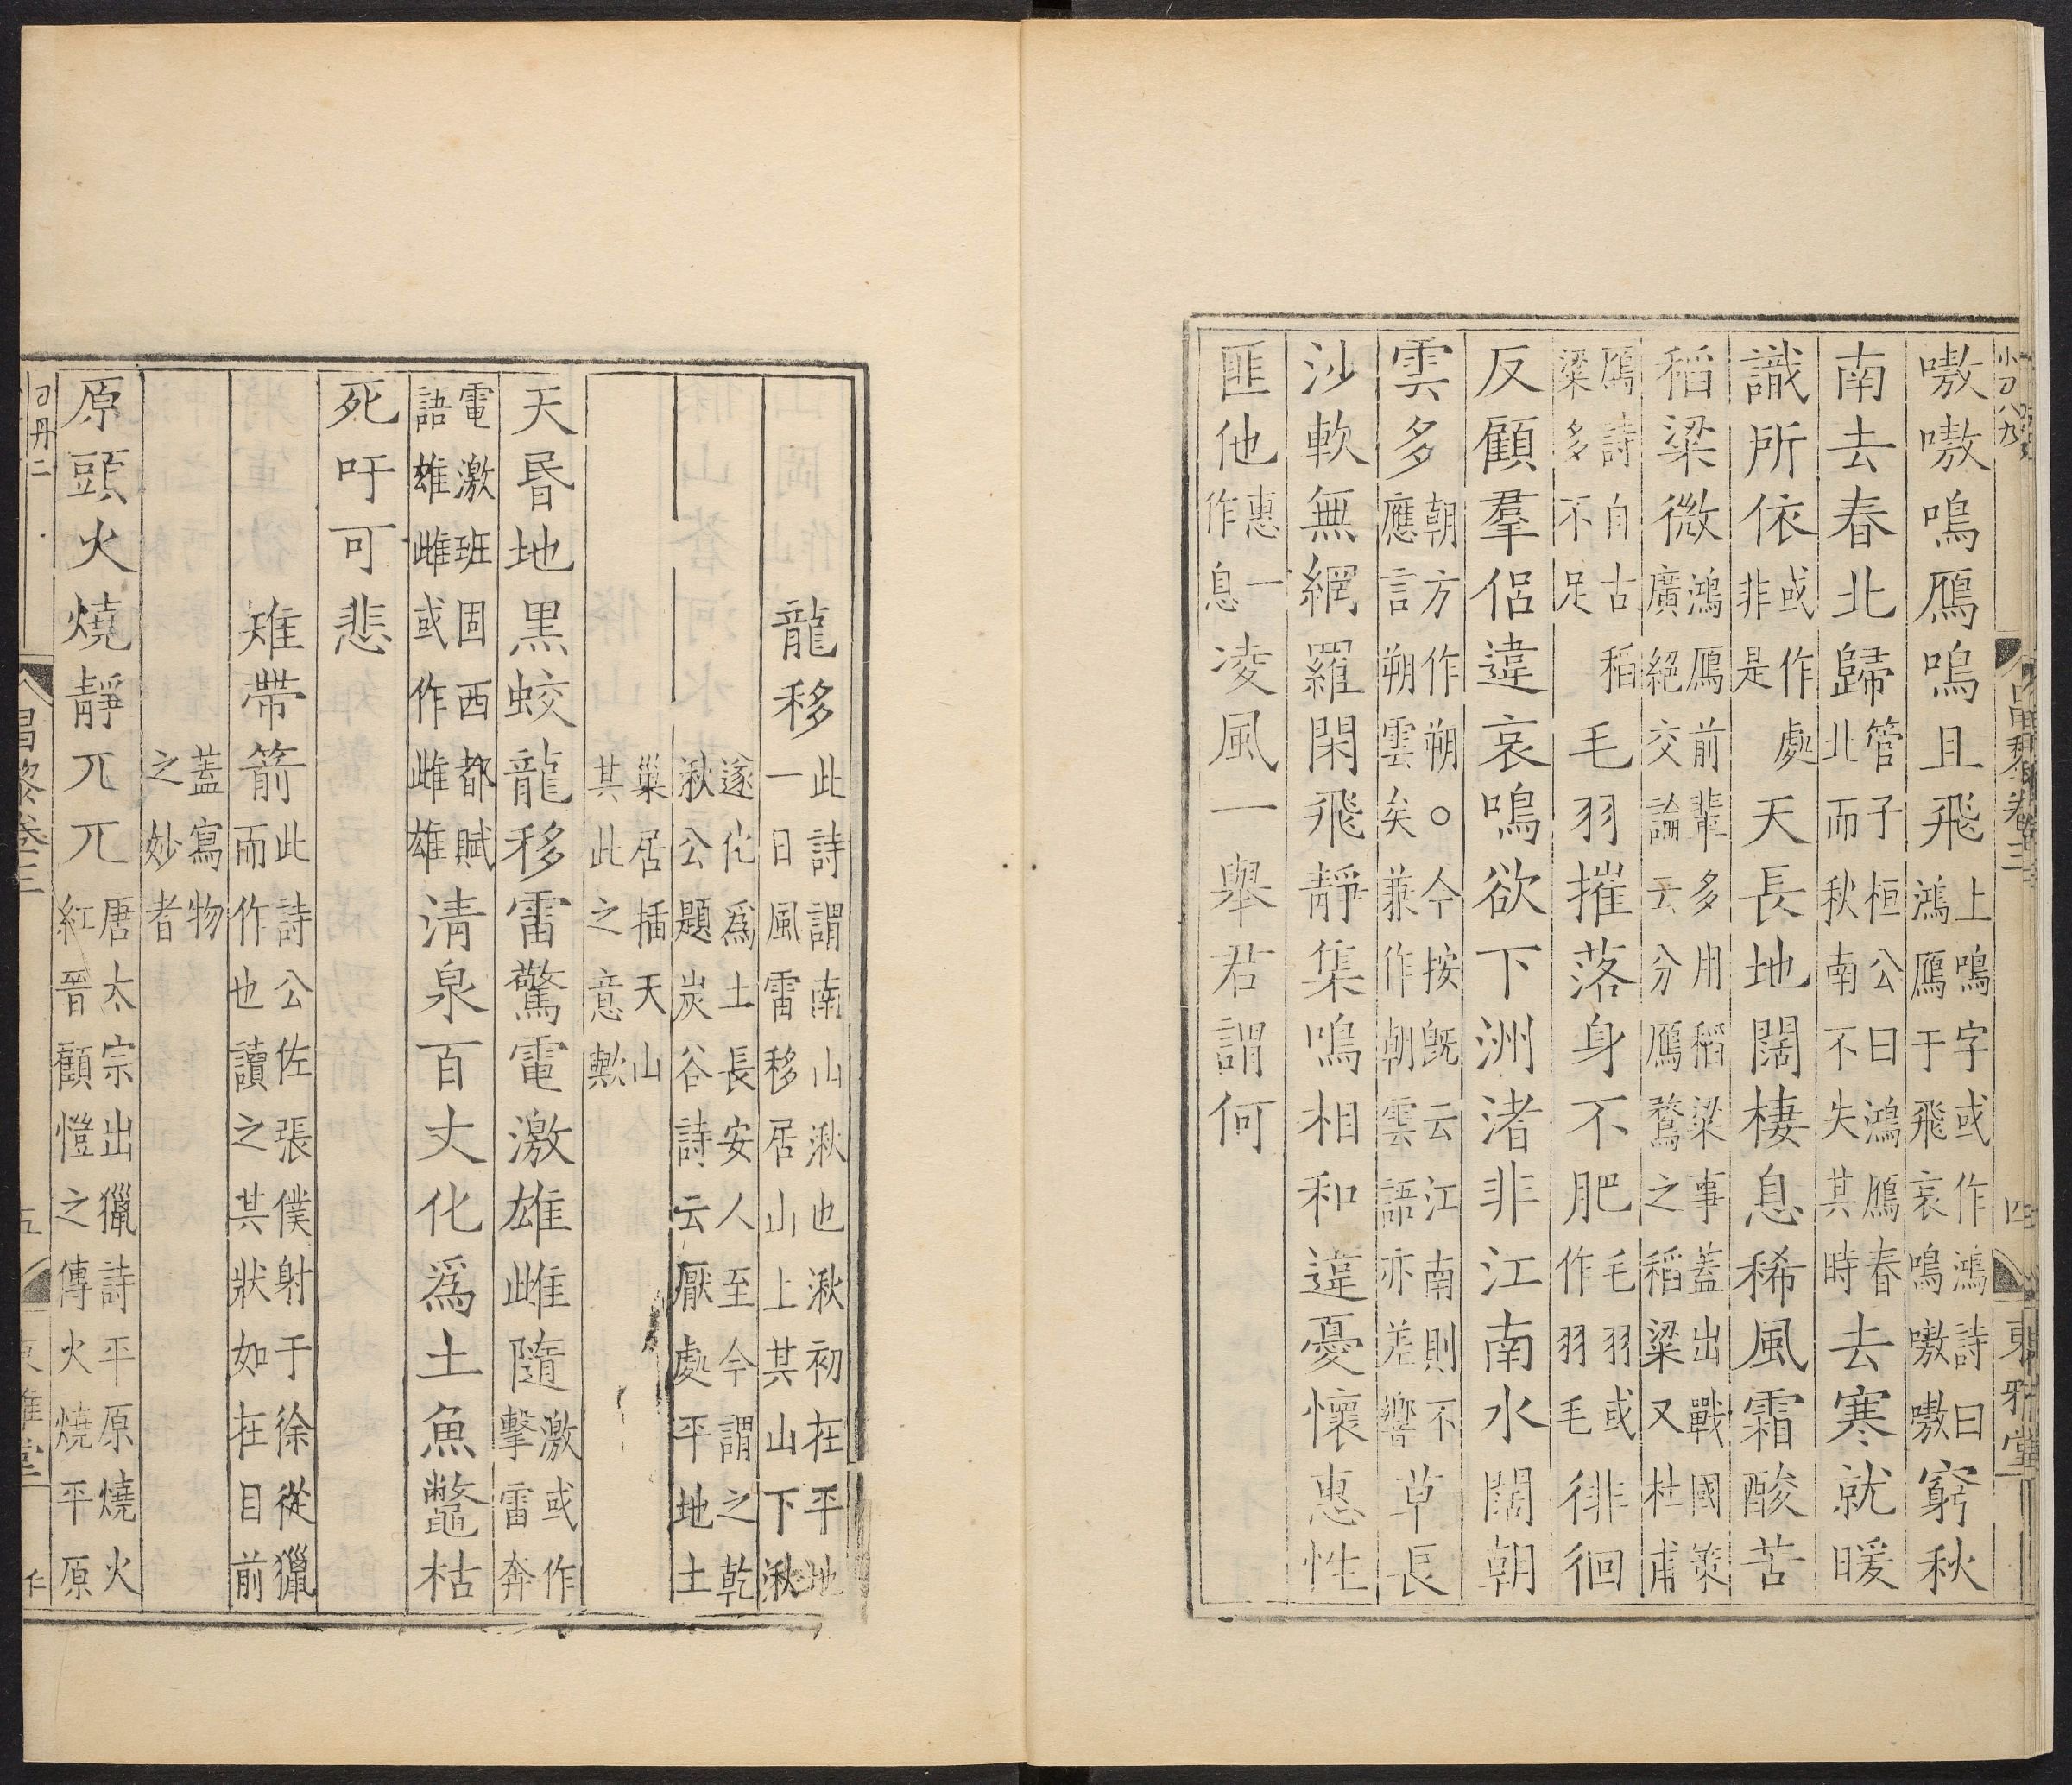 昌黎卷三 四 東雅堂
嗷嗷鳴鴈鳴且飛上鳴字或作鴻詩曰鴻鴈于飛哀鳴嗷嗷窮秋
南去春北歸管子桓公曰鴻鴈春北而秋南不失其時去寒就暖
識所依或作處非是天長地闊棲息稀風霜酸苦
稻粱微鴻鴈前輩多用稻粱事蓋出戰國策廣絕交論云分鴈鶩之稻粱又杜甫
鴈詩自古稻粱多不足毛羽摧落身不肥毛羽或作羽毛徘徊
反顧羣侶違哀鳴欲下洲渚非江南水闊朝
雲多朝方作朔○今按旣云江南則不應言朔雲矣兼作朝雲語亦差響草長
沙軟無網羅閑飛靜集鳴相和違憂懷惠性
匪他惠一作息凌風一舉君謂何
龍移此詩謂南山湫也湫初在平地一日風雷移居山上其山下湫
遂化爲土長安人至今謂之乾湫公題炭谷詩云厭處平地土
巢居插天山其此之意歟
天昏地黑蛟龍移雷驚電激雄雌隨激或作擊雷奔
電激班固西都賦語雄雌或作雌雄清泉百丈化爲土魚鼈枯
死吁可悲
雉帶箭此詩公佐張僕射于徐從獵而作也讀之其狀如在目前
蓋寫物之妙者
原頭火燒靜兀兀唐太宗出獵詩平原燒火紅晉顧愷之傳火燒平原
昌黎卷三 五 東雅堂